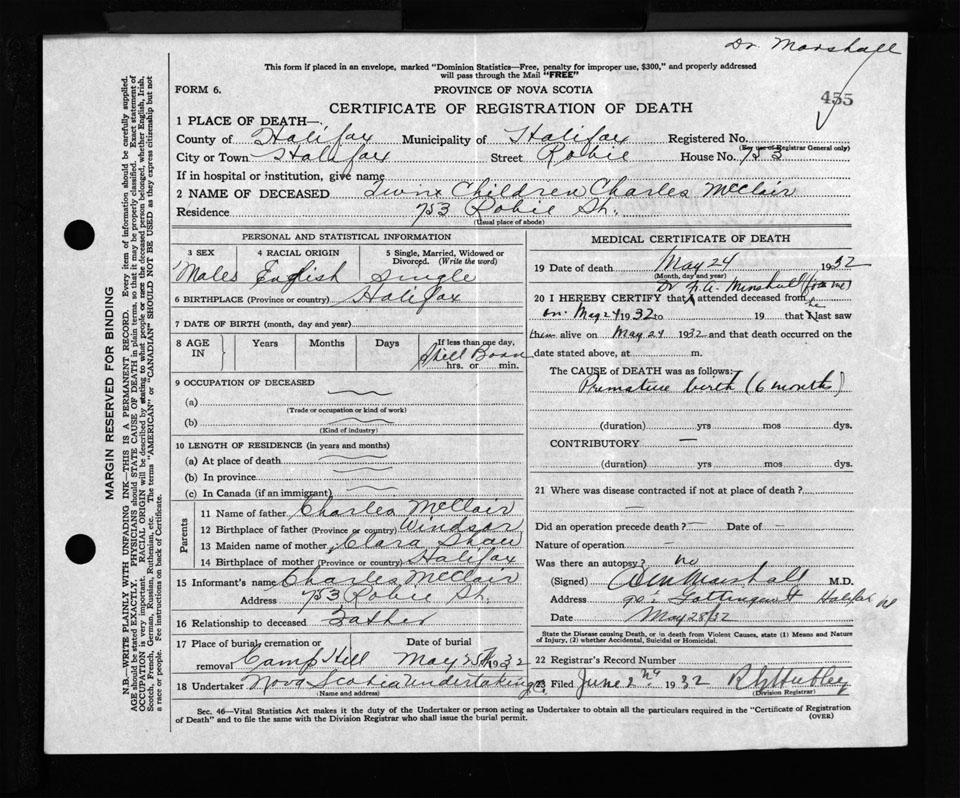 Dr Marshall
This form if placed in an envelope, marked "Dominion Statistics—Free, penalty for improper use, $300," and properly addressed
will pass through the Mail "FREE"
455
FORM 6.
PROVINCE OF NOVA SCOTIA
CERTIFICATE OF REGISTRATION OF DEATH
1 PLACE OF DEATH—
County of Halifax Municipality of Halifax Registered No.
(For use of Registrar General only)
City or Town Halifax Street Robie House No. 753
If in hospital or institution, give name
2 NAME OF DECEASED Twin Children Charles McClair
Residence 753 Robie St.
(Usual place of abode)
MARGIN RESERVED FOR BINDING
N.B.—WRITE PLAINLY WITH UNFADING INK—THIS IS A PERMANENT RECORD. Every item of information should be carefully supplied.
AGE should be stated EXACTLY. PHYSICIANS should STATE CAUSE OF DEATH in plain terms, so that it may be properly classified. Exact statement of
OCCUPATION is very important. RACIAL ORIGIN will be described by stating to what people or race the deceased person belonged, whether English, Irish,
Scotch, French, German, Russian, Ruthenian, etc. The terms "AMERICAN" or "CANADIAN" SHOULD NOT BE USED as they express citizenship but not
a race or people. See instructions on back of Certificate.
PERSONAL AND STATISTICAL INFORMATION
3 SEX 4 RACIAL ORIGIN 5 Single, Married, Widowed or
Divorced. (Write the word)
Males English Single
6 BIRTHPLACE (Province or country) Halifax
7 DATE OF BIRTH (month, day and year)
8 AGE IN Years Months Days If less than one day,
Still Born
hrs. or min.
9 OCCUPATION OF DECEASED
(a)
(Trade or occupation or kind of work)
(b)
(Kind of industry)
10 LENGTH OF RESIDENCE (in years and months)
(a) At place of death
(b) In province
(c) In Canada (if an immigrant)
Parents
11 Name of father Charles McClair
12 Birthplace of father (Province or country) Windsor
13 Maiden name of mother Clara Shaw
14 Birthplace of mother (Province or country) Halifax
15 Informant's name Charles McClair
Address 753 Robie St.
16 Relationship to deceased Father
17 Place of burial, cremation or Date of burial
removal Camp Hill May 25th 1932
18 Undertaker Nova Scotia Undertaking Co
(Name and address)
MEDICAL CERTIFICATE OF DEATH
19 Date of death May 24 1932
(Month, day and year)
Dr F. A. Minshull (for me)
20 I HEREBY CERTIFY that attended deceased from
he
on May 24 1932 to 19 that I last saw
them alive on May 24 1932 and that death occurred on the
date stated above, at m.
The CAUSE of DEATH was as follows:
Premature birth (6 months)
(duration) yrs mos dys.
CONTRIBUTORY —
(duration) yrs mos dys.
21 Where was disease contracted if not at place of death?
—
Did an operation precede death? — Date of —
Nature of operation —
Was there an autopsy? no
(Signed) Marshall M.D.
Address Gottingen St Halifax
Date May 28/32
State the Disease causing Death, or in death from Violent Causes, state (1) Means and Nature
of Injury, (2) whether Accidental, Suicidal or Homicidal.
22 Registrar's Record Number
23 Filed June 2nd 1932
(Division Registrar)
Sec. 46—Vital Statistics Act makes it the duty of the Undertaker or person acting as Undertaker to obtain all the particulars required in the "Certificate of Registration
of Death" and to file the same with the Division Registrar who shall issue the burial permit.
(OVER)